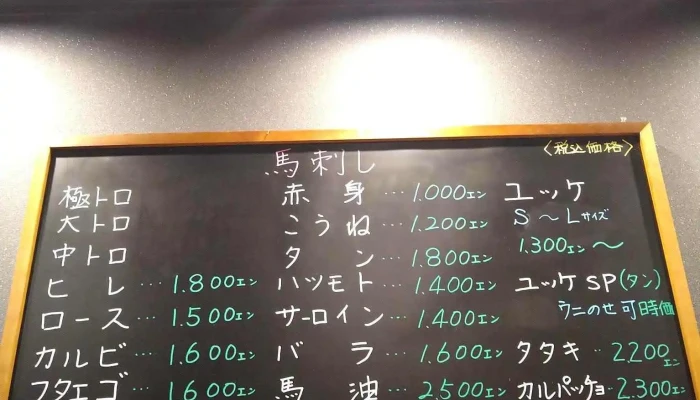 〈税込価格〉
馬刺し
極トロ
大トロ
中トロ
ヒレ…1.800エン
ロース…1.500エン
カルビ…1.600エン
フタエゴ…1600エン
赤身…1.000エン
こうね…1.200エン
タン…1.800エン
ハツモト…1.400エン
サーロイン…1.400エン
バラ…1.600エン
馬油…2,500エン
ユッケ
S〜Lサイズ
1.300エン〜
ユッケSP(タン)
ウニのせ可時価
タタキ…2.200エン
カルパッチョ…2.300エン